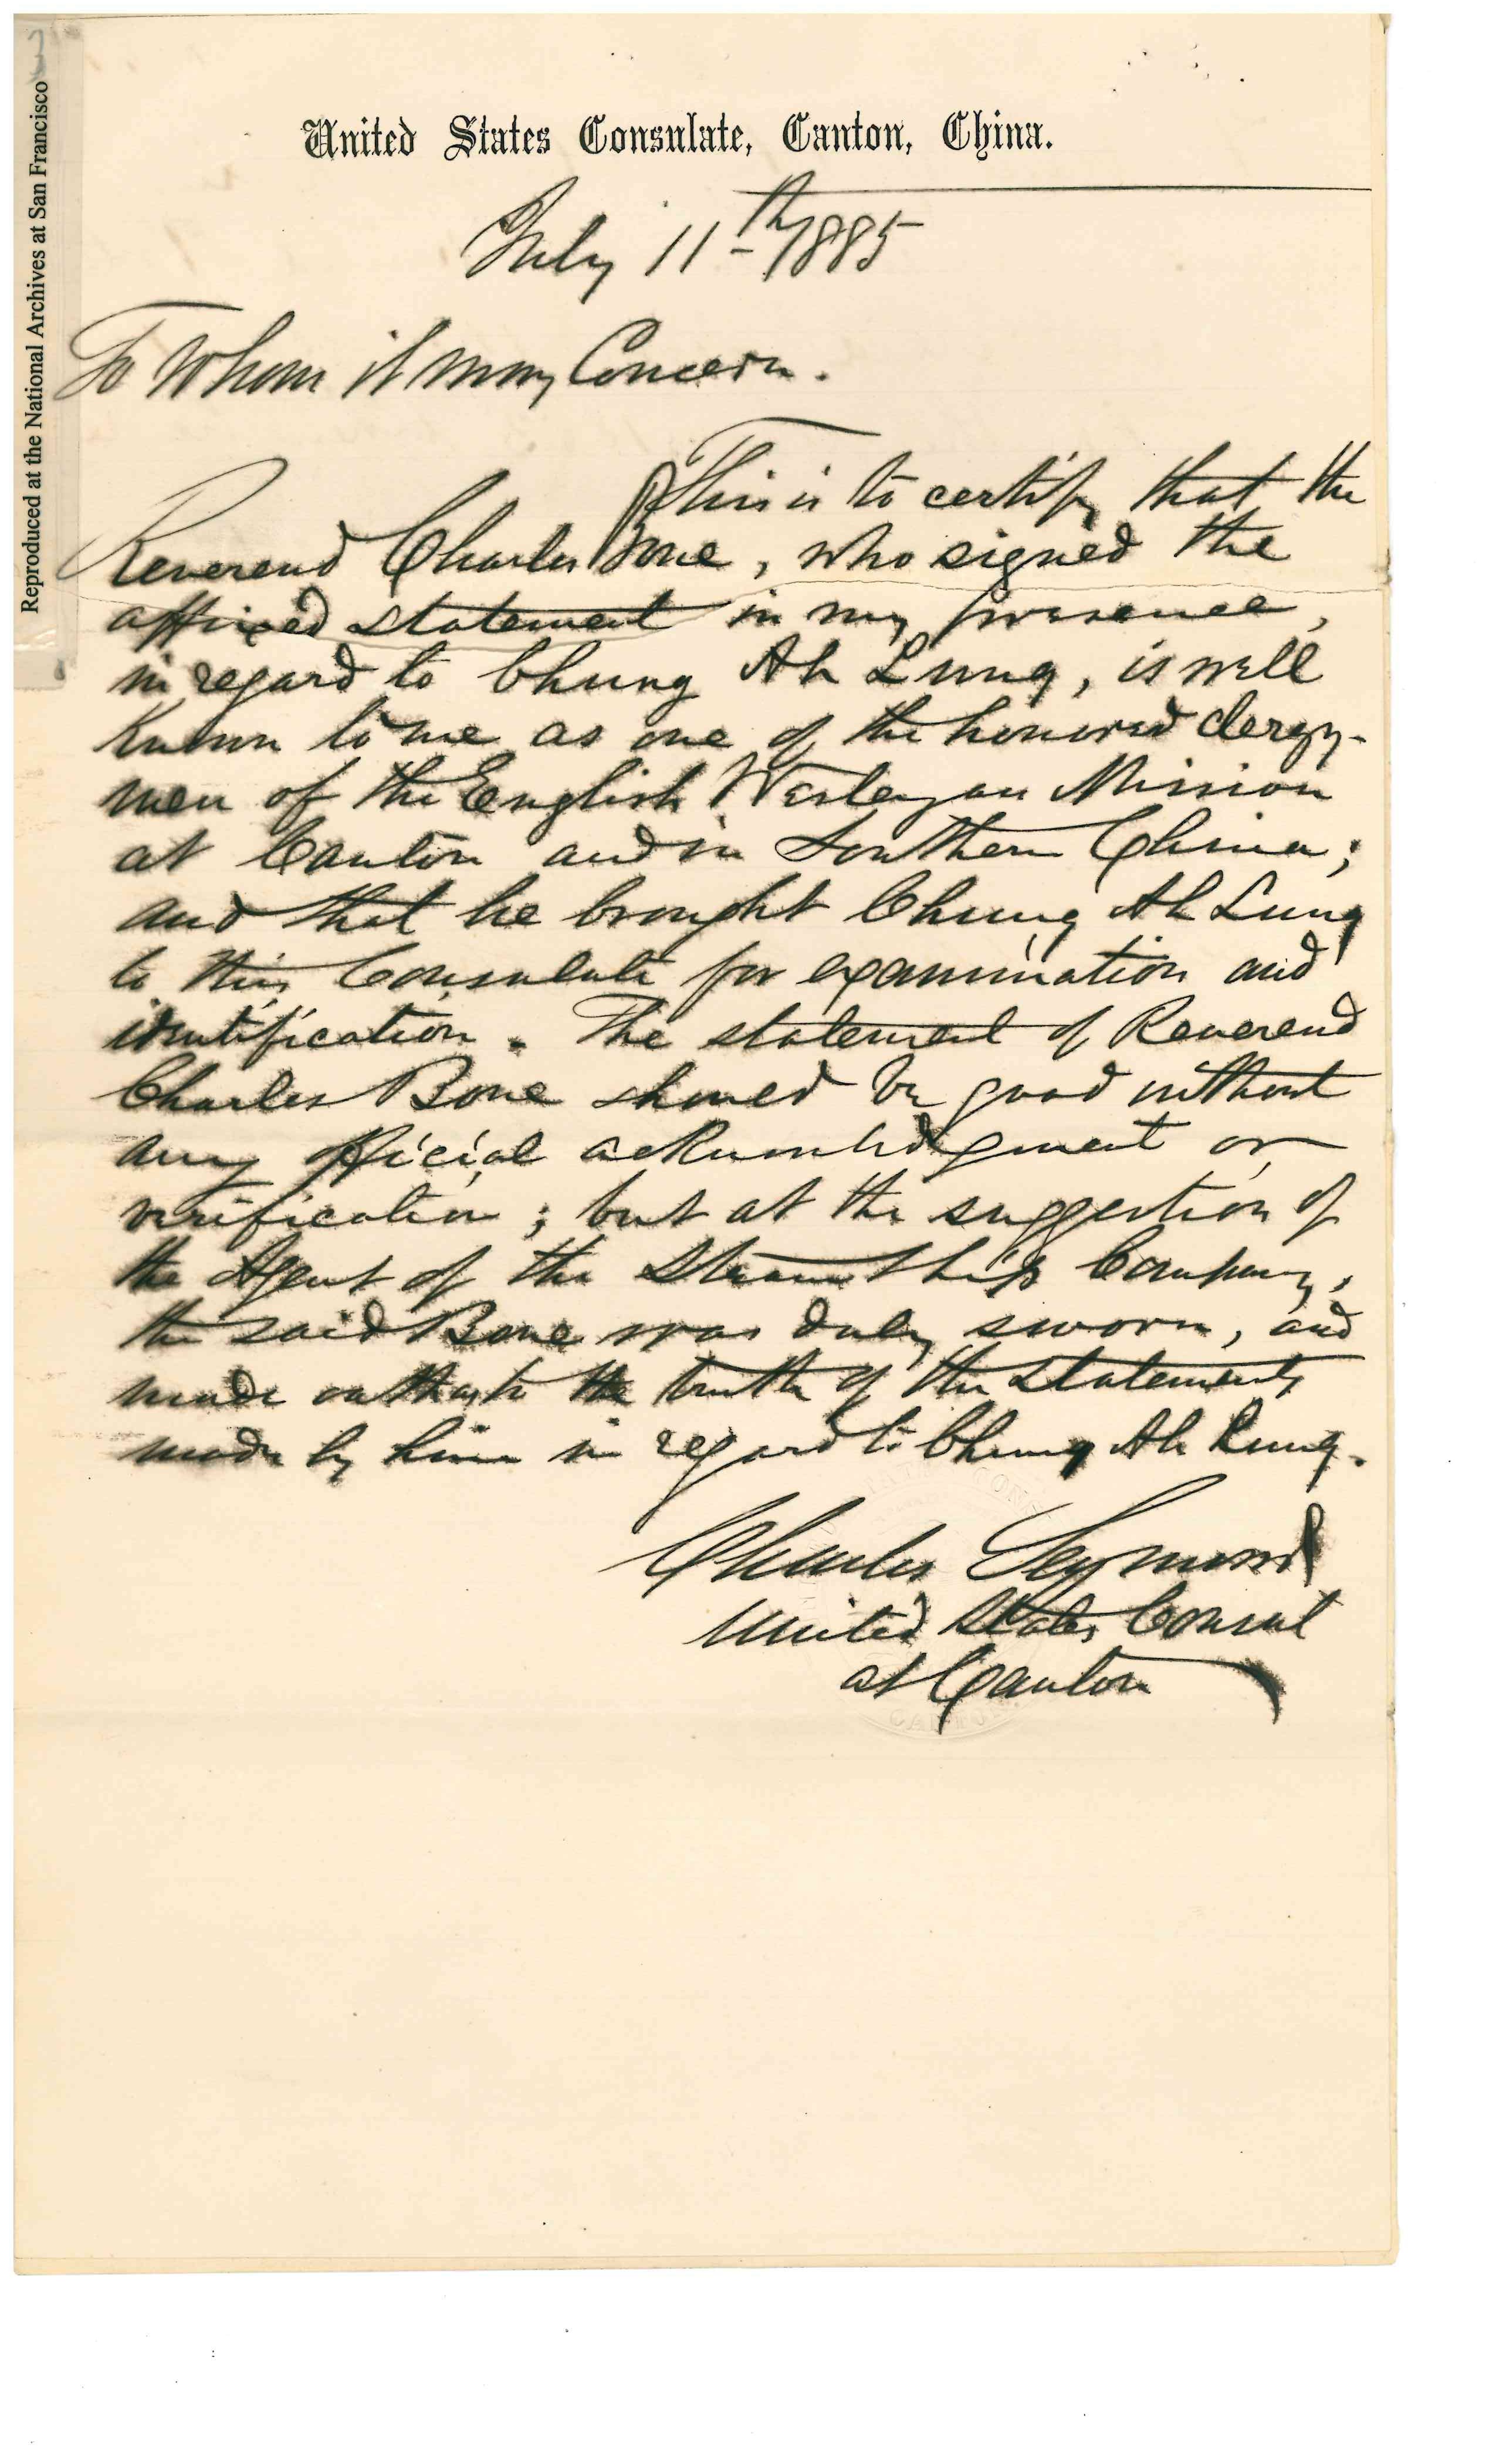 Reproduced at the National Archives at San Francisco
United States Consulate, Canton, China.
July 11th 1885
To Whom it may Concern.
This is to certify that the
Reverend Charles Bone, who signed the
affixed statement in my presence,
in regard to Chung Ah Lung, is well
known to me as one of the honored clergy-
men of the English Wesleyan Mission
at Canton and in Southern China;
and that he brought Chung Ah Lung
to this Consulate for examination and
identification. The statement of Reverend
Charles Bone should be good without
any official acknowledgment or
verification; but at the suggestion of
the Agent of the Steamship Company,
the said Bone was duly sworn, and
made oath as to the truth of the statements
made by him in regard to Chung Ah Lung.
Charles Seymour
United States Consul
at Canton
CANTON